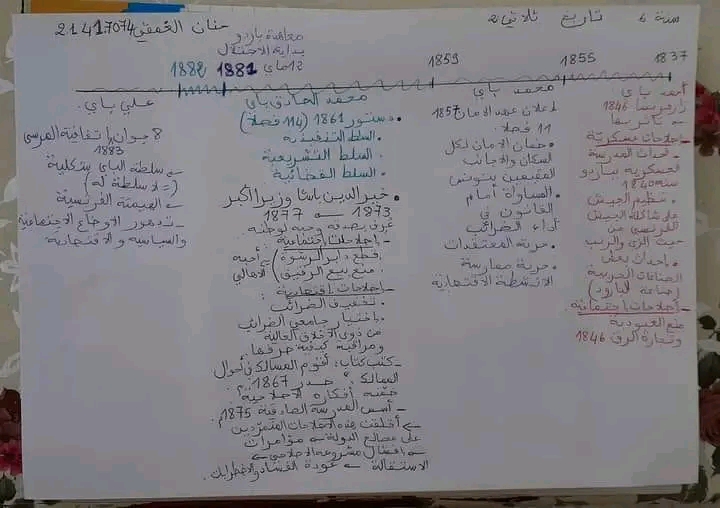 سنة 6 تاريخ ثلاثي 2
حنان الخميفي 21417074
1837
1855
1859
معاهدة باردو
بداية الاحتلال
12 ماي
1881
1882
أحمد باي
زار فرنسا 1846
تأثر بها
إصلاحات عسكرية
- إحداث المدرسة
العسكرية بباردو
سنة 1840
- تنظيم الجيش
على شاكلة الجيش
الفرنسي من
حيث الزي والرتب
- إحداث بعض
الصناعات الحربية
(صناعة البارود)
- إصلاحات اجتماعية
منع العبودية
وتجارة الرق 1846
محمد باي
إعلان عهد الأمان 1857
11 فصلا
• ضمان الأمان لكل
السكان والأجانب
المقيمين بتونس
• المساواة أمام
القانون في
أداء الضرائب
• حرية المعتقدات
• حرية ممارسة
الأنشطة الاقتصادية
محمد الصادق باي
• دستور 1861 (114 فصلا)
• السلط التنفيذية
• السلط التشريعية
• السلط القضائية
• خير الدين باشا وزيرا أكبر
1873 ← 1877
عرف بصدقه وحبه لوطنه
- إصلاحات اجتماعية
قطع دابر الرشوة ← أحبه
منع بيع الرقيق الأهالي
- إصلاحات اقتصادية:
• تخفيف الضرائب
• اختيار جامعي الضرائب
من ذوي الأخلاق العالية
ومراقبة كيفية صرفها
- كتب كتاب: أقوم المسالك في أحوال
الممالك: صدر 1867
ضمنه أفكاره الإصلاحية
- أسس المدرسة الصادقية 1875
← أقلقت هذه الإصلاحات المتمردين
على مصالح الدولة ← مؤامرات
← إفشال مشروعه الإصلاحي ←
الاستقالة ← عودة الفساد والاضطرابات
علي باي
8 جوان اتفاقية المرسى
1883
← سلطة الباي شكلية
(= لا سلطة له)
← الهيمنة الفرنسية
- تدهور الأوضاع الاجتماعية
والسياسية والاقتصادية